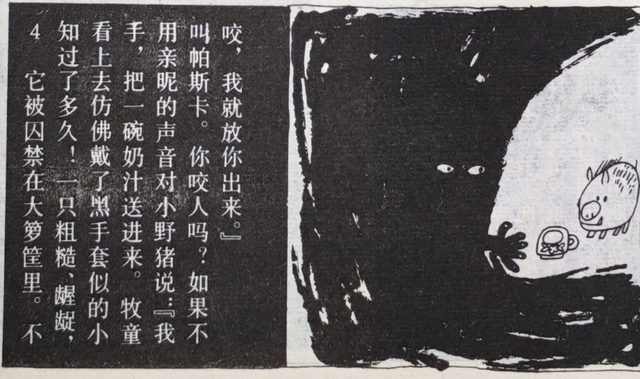 4 它被囚禁在大箩筐里。不
知过了多久！一只粗糙、龌龊，
看上去仿佛戴了黑手套似的小
手，把一碗奶汁送进来。牧童
用亲昵的声音对小野猪说：『我
叫帕斯卡。你咬人吗？如果不
咬，我就放你出来。』